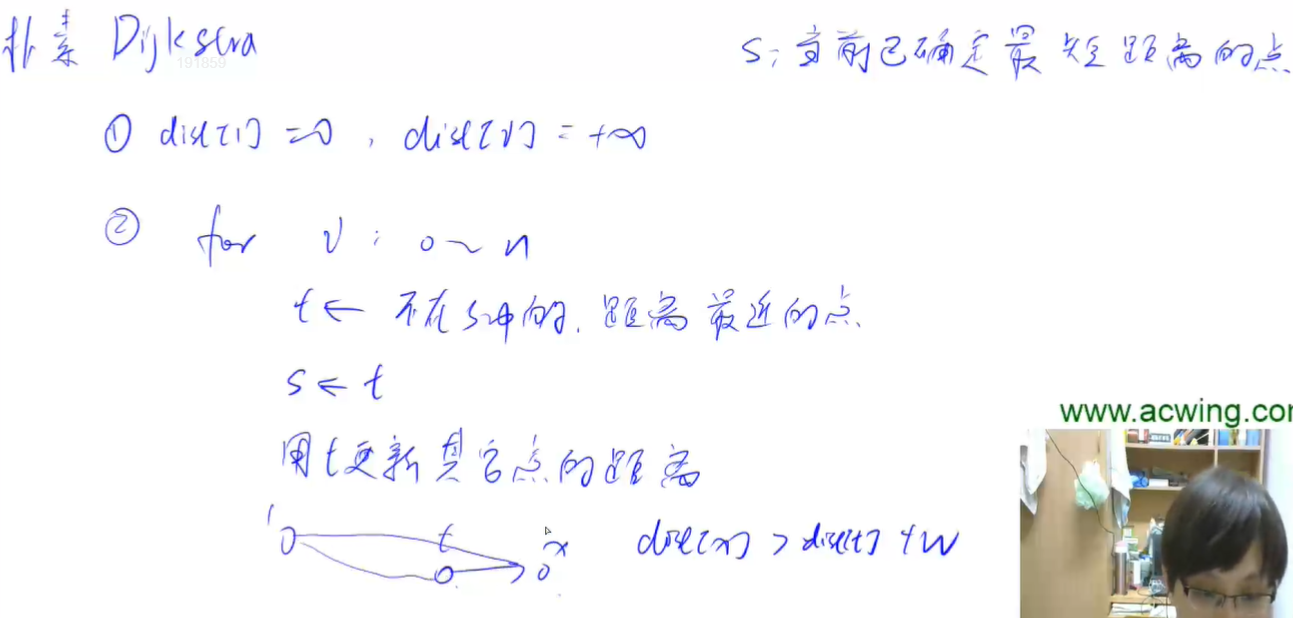 朴素 Dijkstra
191859
S: 当前已确定最短距离的点
① dist[1] = 0, dist[i] = +∞
② for i : 0 ~ n
t ← 不在s中的, 距离最近的点
s ← t
用t更新其它点的距离
1 t x dist[x] > dist[t] + w
www.acwing.co